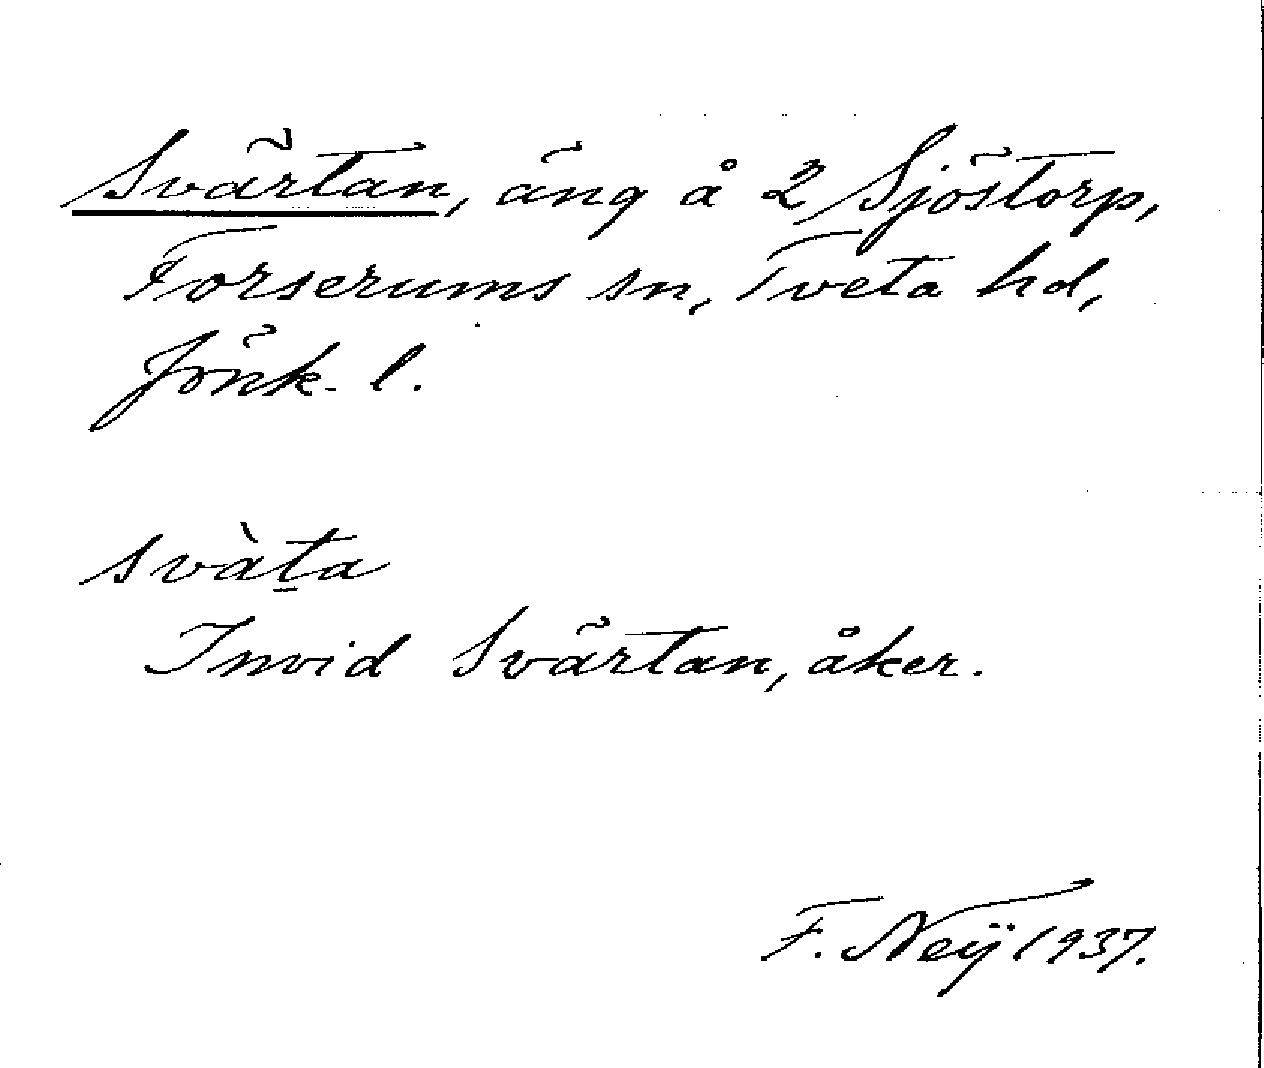 Svärtan, äng å 2 Sjöstorp,
Forserums sn, Tveta hd,
Jönk. l.
svàṯa
Invid Svärtan, åker.
F. Neÿ 1937.